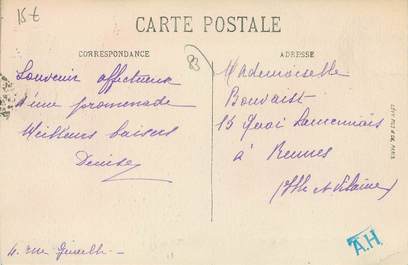 15€
CARTE POSTALE
CORRESPONDANCE
ADRESSE
83
Souvenir affectueux
d'une promenade
Meilleurs baisers
Denise
Mademoiselle
Bouvaist
15 Quai Lamennais
à Rennes
(Ille et Vilaine)
4. rue
A.H